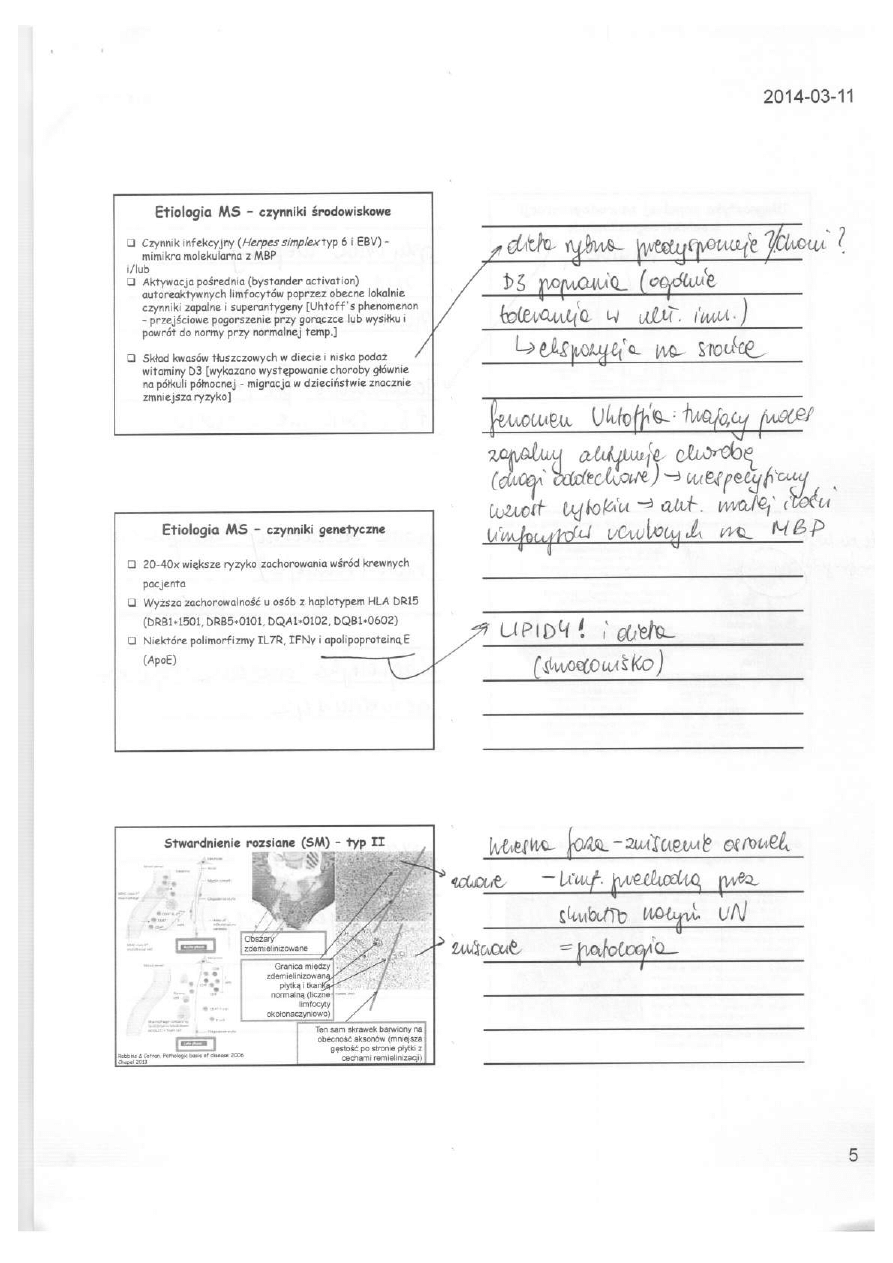 2014-03-11
Etiologia MS – czynniki środowiskowe
❑ Czynnik infekcyjny (Herpes simplex typ 6 i EBV) –
mimikra molekularna z MBP
i/lub
❑ Aktywacja pośrednia (bystander activation)
autoreaktywnych limfocytów poprzez obecne lokalnie
czynniki zapalne i superantygeny [Uhtoff's phenomenon
– przejściowe pogorszenie przy gorączce lub wysiłku i
powrót do normy przy normalnej temp.]
❑ Skład kwasów tłuszczowych w diecie i niska podaż
witaminy D3 [wykazano występowanie choroby głównie
na półkuli północnej – migracja w dzieciństwie znacznie
zmniejsza ryzyko]
dieta rybna predysponuje ?/chroni ?
D3 poprawia (ogólnie
tolerancja w ukł. imm.)
↳ ekspozycja na słońce
fenomen Uhtoffa: trwający proces
zapalny aktywuje chorobę
(drogi oddechowe) → niespecyficzny
wzrost cytokin → akt. małej ilości
limfocytów na MBP
Etiologia MS – czynniki genetyczne
❑ 20-40x większe ryzyko zachorowania wśród krewnych
pacjenta
❑ Wyższa zachorowalność u osób z haplotypem HLA DR15
(DRB1*1501, DRB5*0101, DQA1*0102, DQB1*0602)
❑ Niektóre polimorfizmy IL7R, IFNγ i apolipoproteiną E
(ApoE)
LIPIDY! i dieta
(środowisko)
Stwardnienie rozsiane (SM) – typ II
Obszary
zdemielinizowane
Granica między
zdemielinizowaną
płytką i tkanką
normalną (liczne
limfocyty
okołonaczyniowo)
Ten sam skrawek barwiony na
obecność aksonów (mniejsza
gęstość po stronie płytki z
cechami remielinizacji)
Robbins & Cotran. Pathologic basis of disease 2006
wczesna faza – zniszczenie osłonek
zdrowe – limf. przechodzą przez
światło naczyń UN
zniszczone = patologia
5